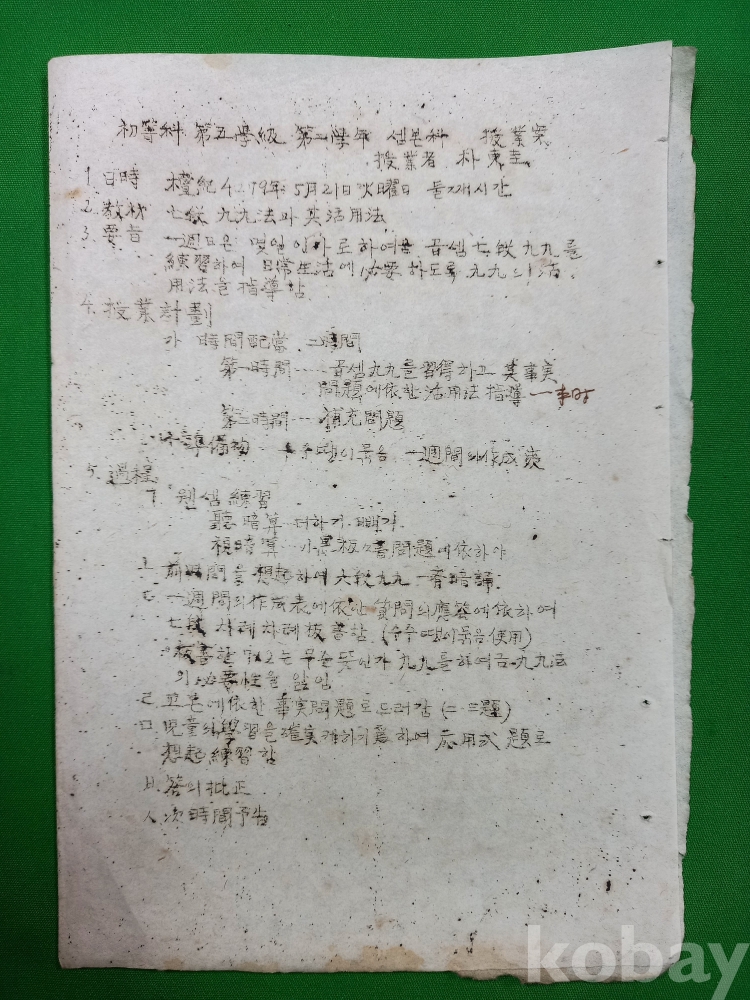 初等科 第五學級 第二学年 셈본科 授業案
授業者 朴東圭
1. 日時 檀紀4279年 5月21日 火曜日 둘재시간
2. 敎材 七段 九九法과 其活用法
3. 要旨 一週日은 몇일인가로하여금 곱셈七段九九를
練習하여 日常生活에 必要하도록 九九의 活
用法을 指導함
4. 授業計劃
가 時間配當 二時間
第一時間……곱셈九九를習得하고 其事実
問題에依한活用法指導 一本时
第二時間……補充問題
準備物 수수땅이묶음 一週間의作成表
5. 過程
ㄱ. 웬셈練習
聽暗算……더하기. 빼기.
視暗算……小黒板 書問題에依하야
ㄴ. 前時間을 想起하여 六段九九 一齊暗誦.
ㄷ. 一週間의作成表에依한 質問의應答에依하여
七段 차례차례板書함. (수수땅이묶음使用)
板書한 7×2는 무슨뜻인가 九九를하여금 九九法
의必要性을 앎임
ㄹ. 교본에依한 事実問題로드러감 (二.三題)
ㅁ. 児童의學習을確実케하기爲하여 応用式題로
想起練習함
ㅂ. 答의批正
ㅅ. 次時間予告
kobay